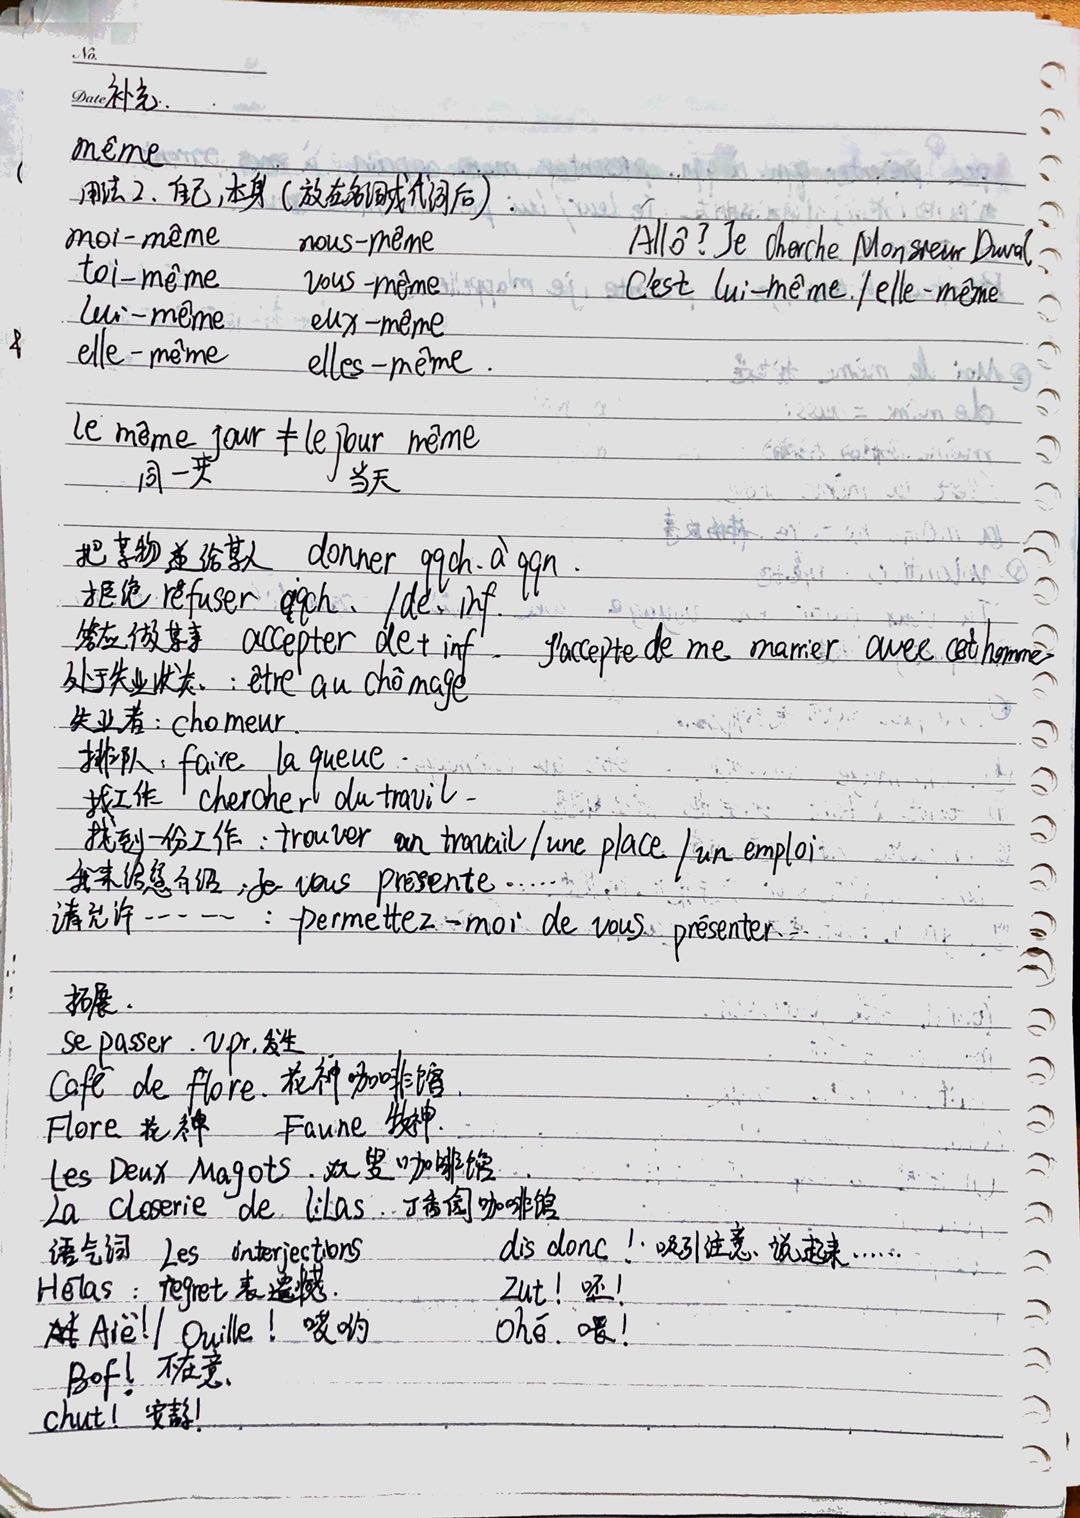 No.
Date 补充.
même
用法2. 自己,本身(放在名词或代词后).
moi-même nous-même Allô? Je cherche Monsieur Duval
toi-même vous-même C'est lui-même./elle-même
lui-même eux-même
elle-même elles-même.
le même jour ≠ le jour même
同一天 当天
把某物递给某人 donner qqch. à qqn.
拒绝 réfuser qqch. /de. inf.
答应做某事 accepter de + inf. J'accepte de me marrier avec cet homme.
处于失业状态.: être au chômage
失业者: chomeur.
排队: faire la queue.
找工作 chercher du travil.
找到一份工作: trouver un travail/une place /un emploi.
我来给您介绍: je vous présente......
请允许------: permettez-moi de vous présenter....
拓展.
se passer. v.pr. 发生
Café de flore. 花神咖啡馆.
Flore 花神 Faune 牧神.
Les Deux Magots. 双叟咖啡馆
La closerie de lilas. 丁香园咖啡馆
语气词 Les interjections dis donc! 吸引注意、说起来......
Hélas: regret 表遗憾. Zut! 呸!
Aïe!/ Ouille! 哎哟 Ohé. 喂!
Bof! 不在意.
chut! 安静!